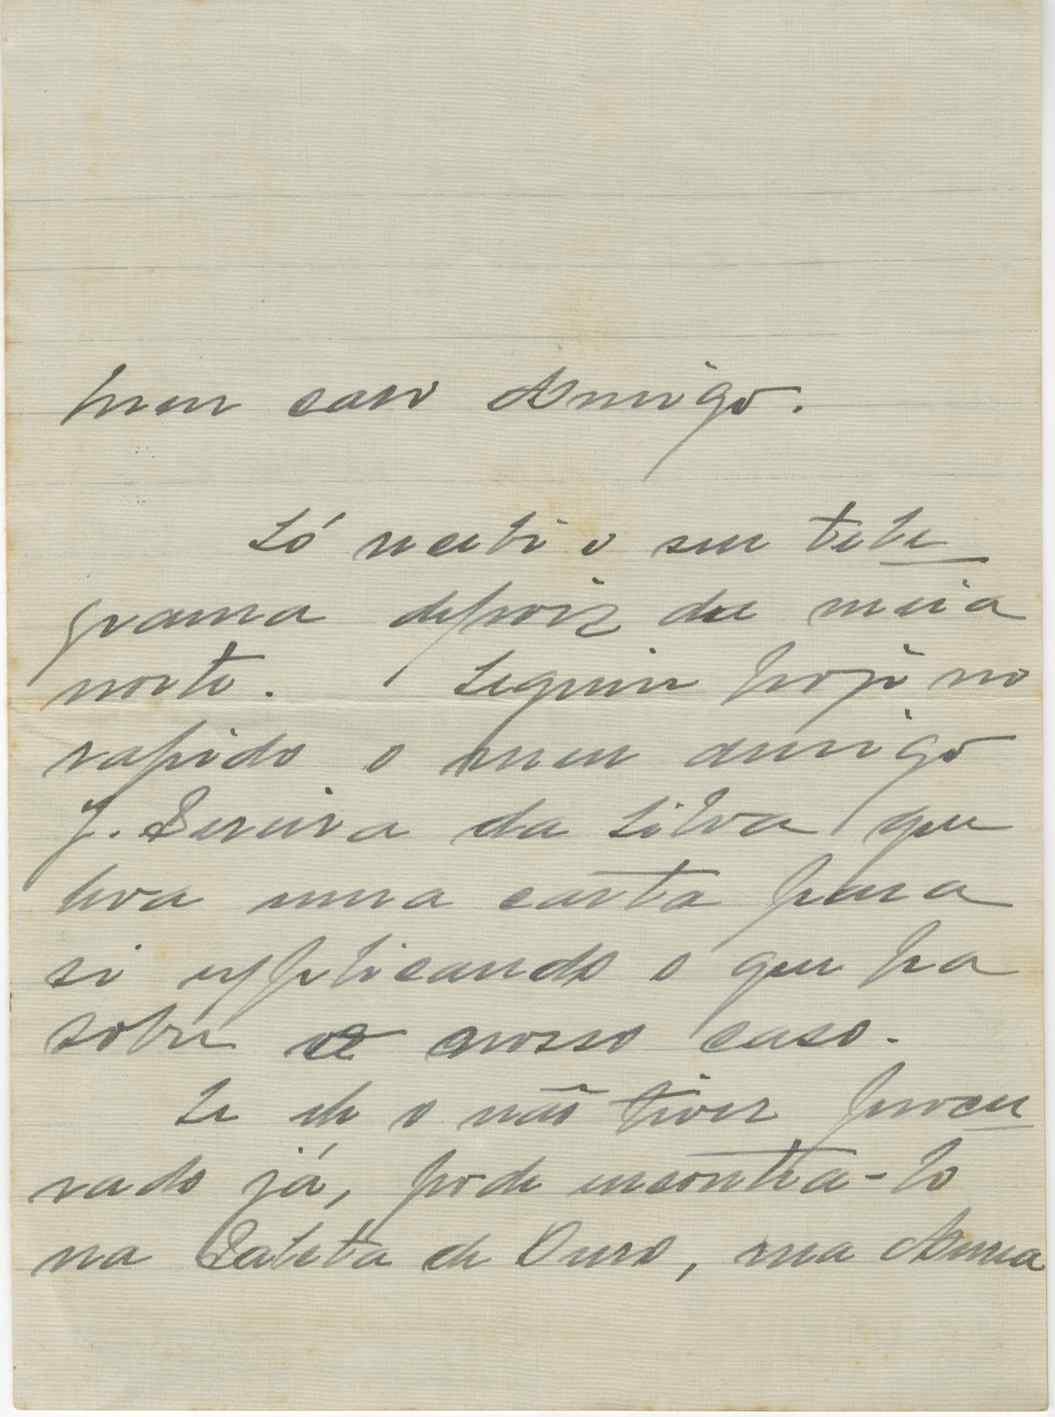 Meu caro Amigo.
Só recebi o seu tele
grama depois de meia
noite. Seguiu hoje no
rapido o meu amigo
J. Pereira da Silva que
leva uma carta para
si explicando o que ha
sobre o nosso caso.
Se ele o não tiver procu
rado já, pode encontra-lo
na Paleta de Ouro, rua Aurea